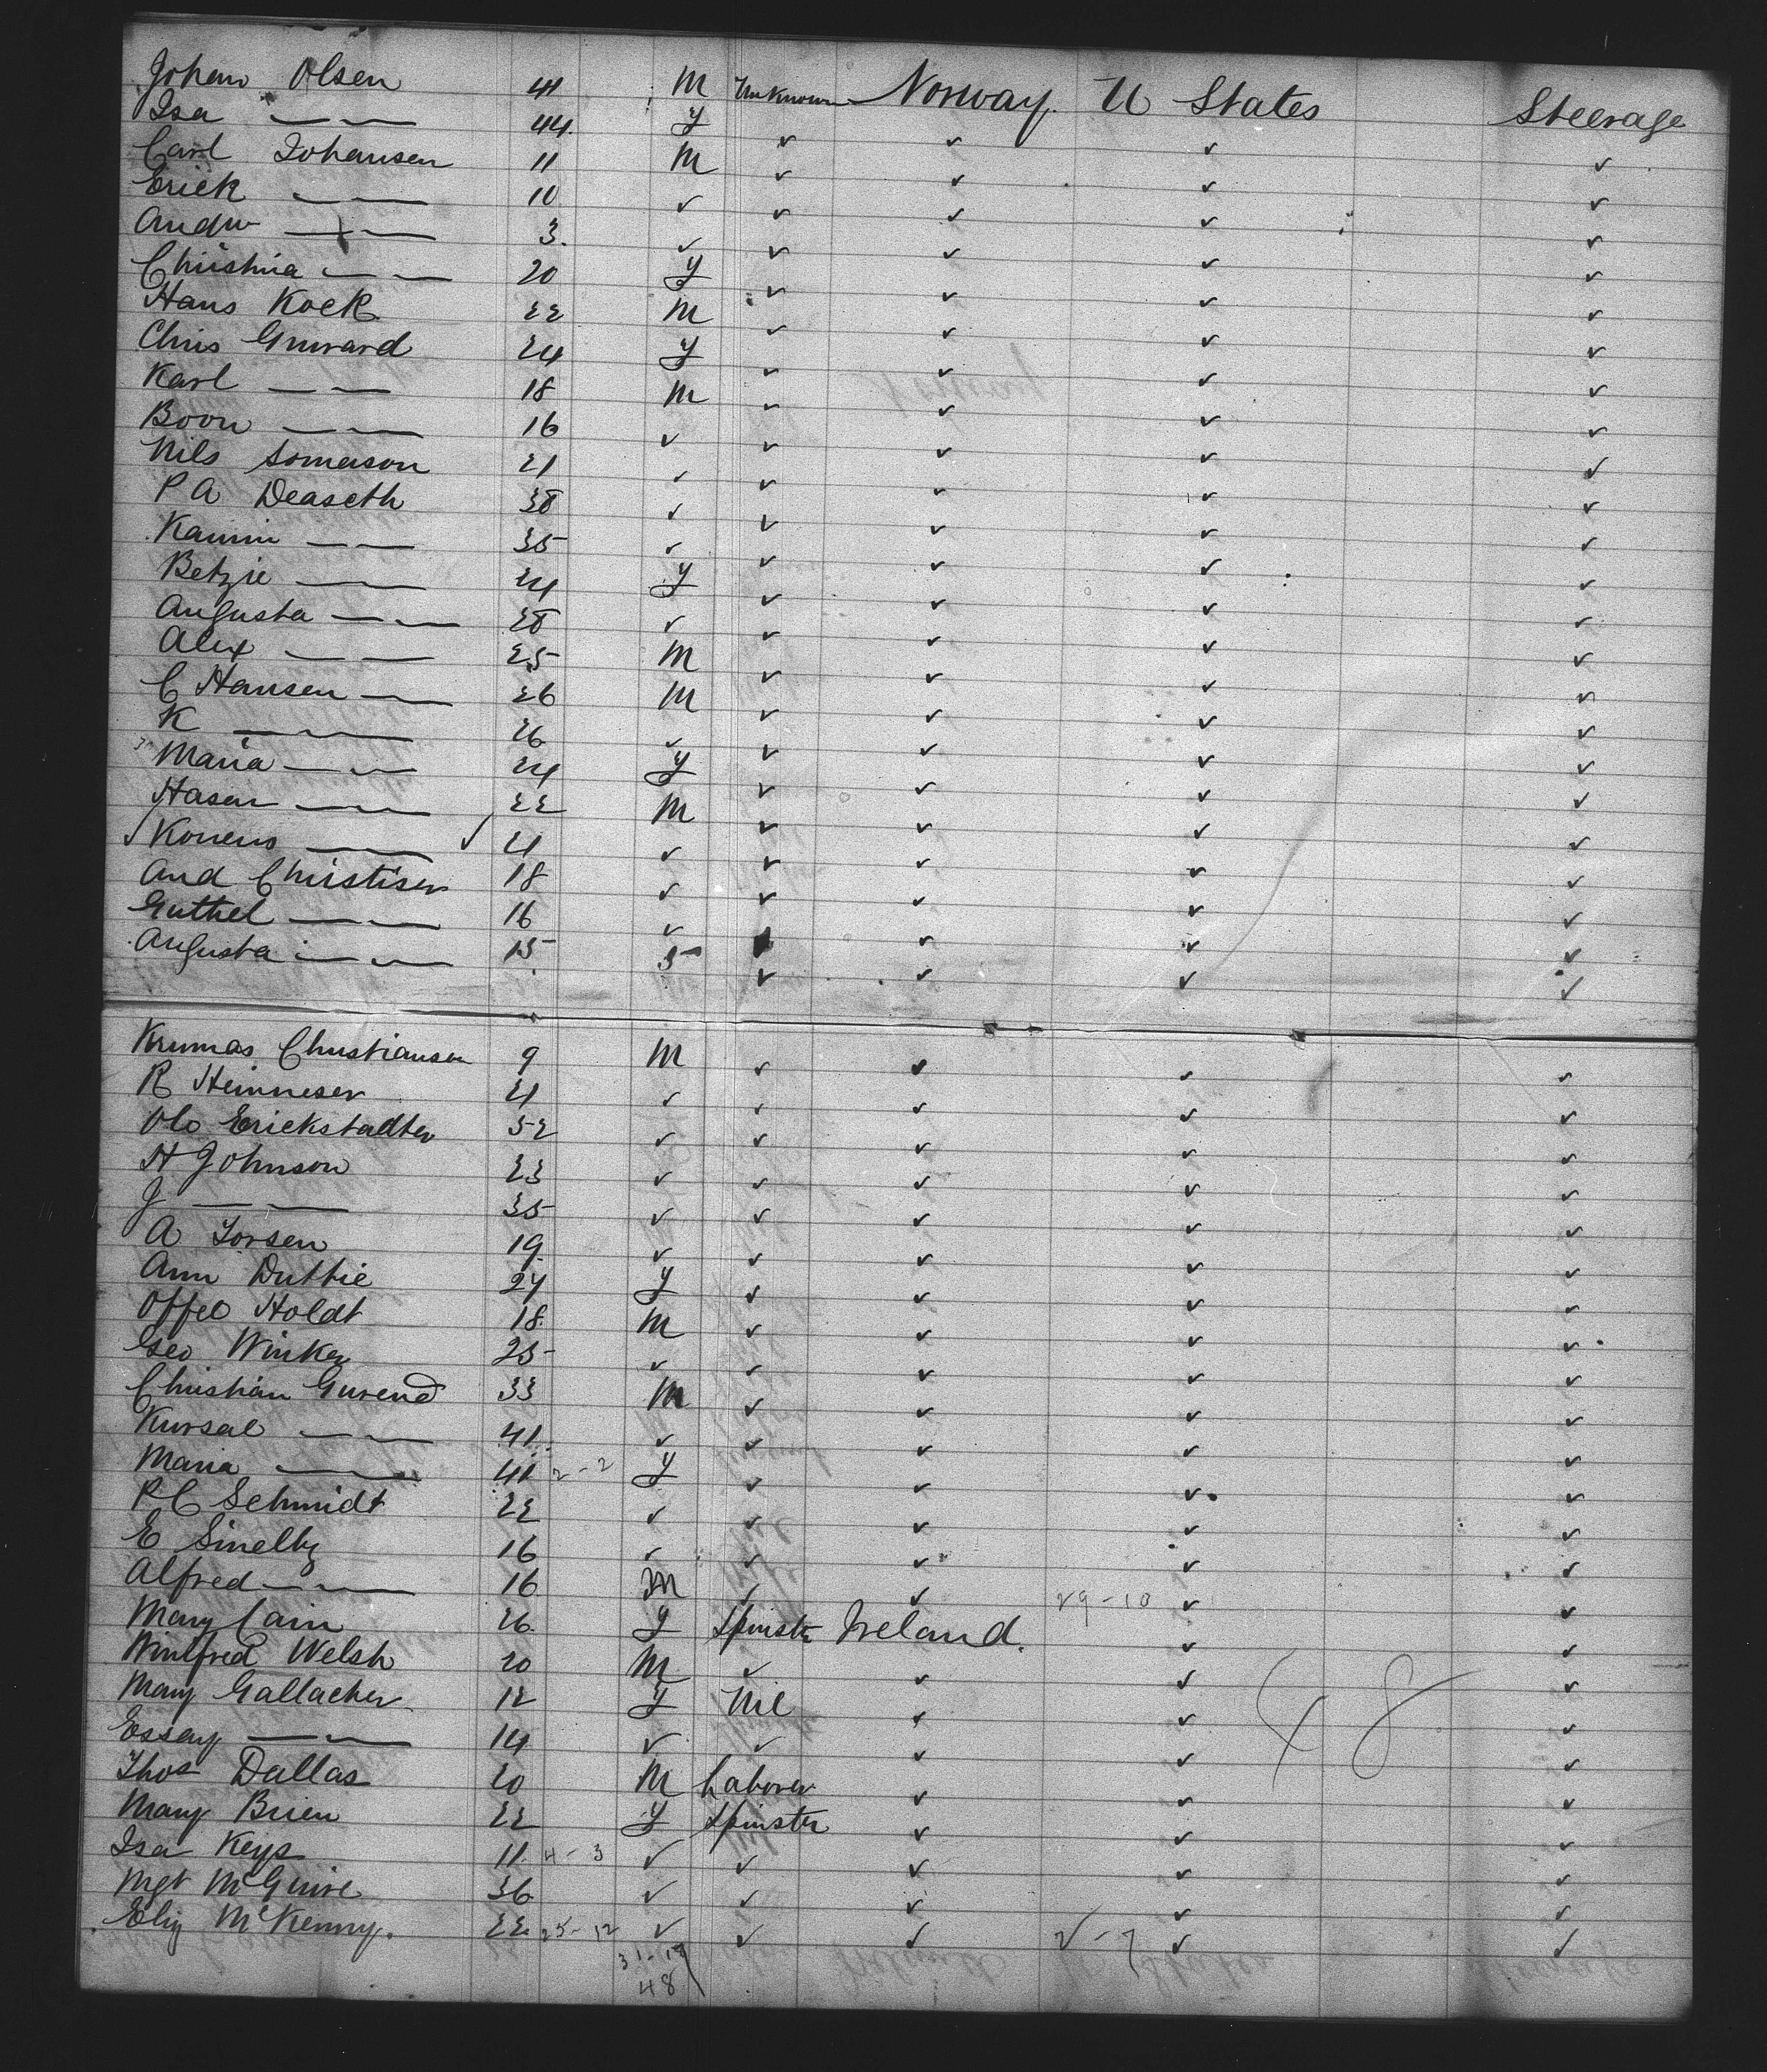 Johan Olsen 41 M Unknown Norway U States Steerage
Isa — — 44 F ✓ ✓ ✓ ✓
Carl Johansen 11 M ✓ ✓ ✓ ✓
Erick — — 10 ✓ ✓ ✓ ✓ ✓
Andw — — 3 ✓ ✓ ✓ ✓ ✓
Christina — — 20 F ✓ ✓ ✓ ✓
Hans Kock 22 M ✓ ✓ ✓ ✓
Chris Gunvard 24 F ✓ ✓ ✓ ✓
Karl — — 18 M ✓ ✓ ✓ ✓
Boon — — 16 ✓ ✓ ✓ ✓ ✓
Nils Somerson 21 ✓ ✓ ✓ ✓ ✓
P A Deaseth 38 ✓ ✓ ✓ ✓ ✓
— — 35 ✓ ✓ ✓ ✓ ✓
Betzie — — 24 F ✓ ✓ ✓ ✓
Augusta — — 28 ✓ ✓ ✓ ✓ ✓
Alex — — 25 M ✓ ✓ ✓ ✓
C Hansen — — 26 M ✓ ✓ ✓ ✓
K — — 26 ✓ ✓ ✓ ✓ ✓
Maria — — 24 F ✓ ✓ ✓ ✓
Hasen — — 22 M ✓ ✓ ✓ ✓
✓ Konens — — ✓ 21 ✓ ✓ ✓ ✓ ✓
And Christisen 18 ✓ ✓ ✓ ✓ ✓
Guthel — — 16 ✓ ✓ ✓ ✓
Augusta — — 15 ✓ ✓ ✓ ✓
Krumas Christiansen 9 M ✓ ✓ ✓ ✓
R Heinnesen 21 ✓ ✓ ✓ ✓ ✓
Olo Erickstadter 52 ✓ ✓ ✓ ✓ ✓
H Johnson 23 ✓ ✓ ✓ ✓ ✓
J — — 35 ✓ ✓ ✓ ✓ ✓
A Torsen 19 ✓ ✓ ✓ ✓ ✓
Ann Duthie 24 F ✓ ✓ ✓ ✓
Offeo Holdt 18 M ✓ ✓ ✓ ✓
Geo Winker 25 ✓ ✓ ✓ ✓ ✓
Christian Gurend 33 M ✓ ✓ ✓ ✓
Kursal — — 41 ✓ ✓ ✓ ✓ ✓
Maria — — 41 2-2 F ✓ ✓ ✓ ✓
P C Schmidt 22 ✓ ✓ ✓ ✓ ✓
E Sinelby 16 ✓ ✓ ✓ ✓ ✓
Alfred — — 16 M ✓ ✓ 29-10 ✓ ✓
Mary Cain 26 F Spinster Ireland. ✓ ✓
Winifred Welsh 20 M ✓ ✓ ✓ ✓
Mary Gallacher 12 F Nil ✓ ✓ 48 ✓
Essay — — 14 ✓ ✓ ✓ ✓ ✓
Thos Dallas 20 M Laborer ✓ ✓ ✓
Mary Brien 22 F Spinster ✓ ✓ ✓
Isa Keys 11 4-3 ✓ ✓ ✓ ✓ ✓
Mgt McGuire 36 ✓ ✓ ✓ ✓ ✓
Eliz McKenny. 22 25-12 ✓ ✓ ✓ 2-7 ✓ ✓
31-17
48